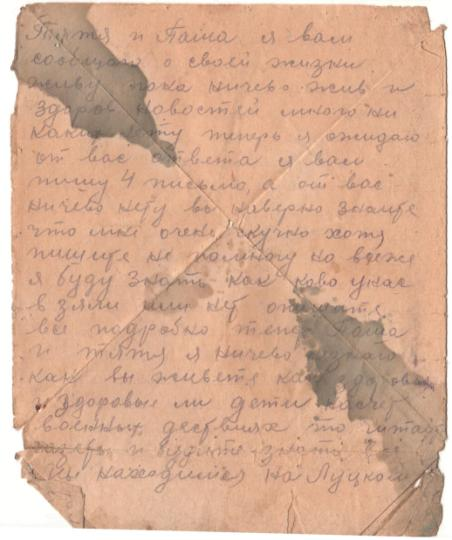 Тятя и Паша я вам
сообщаю о своей жизни
живу пока ничево жив и
здоров новостей много ни
каких нету теперь я ожидаю
от вас ответа я вам
пишу 4 письмо, а от вас
ничево нету вы наверно знаите
что мне очень скучно хотя
пишите не помногу но вдеже
я буду знать как ково унас
взяли или нет опишите
все подробно тепе Паша
и тятя я ничево незнаю
как вы живете как здоровье
и здоровые ли дети насчет
военных действиях то читай
газеты и будите знать все
мы находимся на Луцком